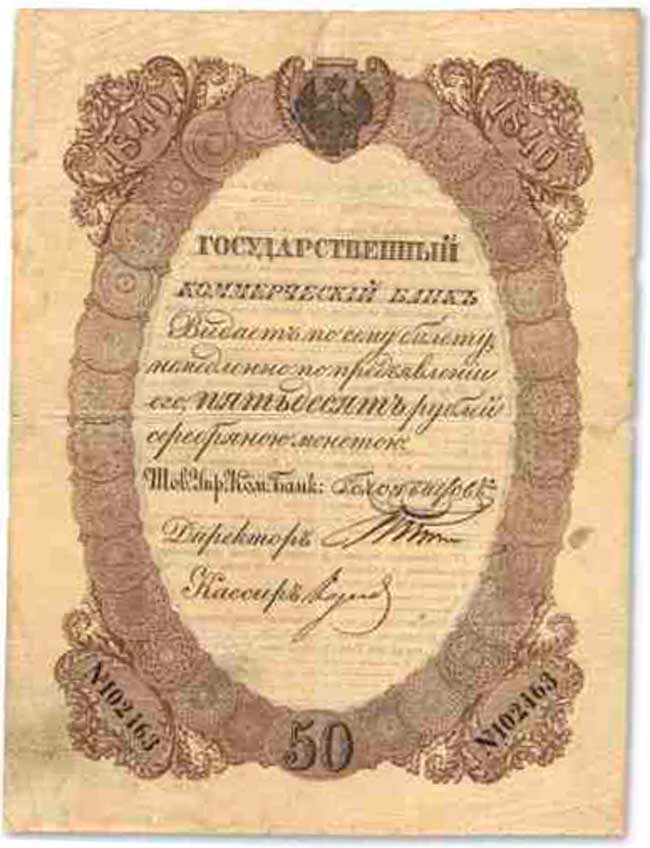 1840 1840
ГОСУДАРСТВЕННЫЙ
КОММЕРЧЕСКІЙ БАНКЪ
Выдаетъ по сему билету,
немедленно по предъявленіи
его, пятьдесятъ рублей
серебряною монетою:
Тов. Упр. Ком. Банк:
Директоръ
Кассиръ
N102463 N102463
50